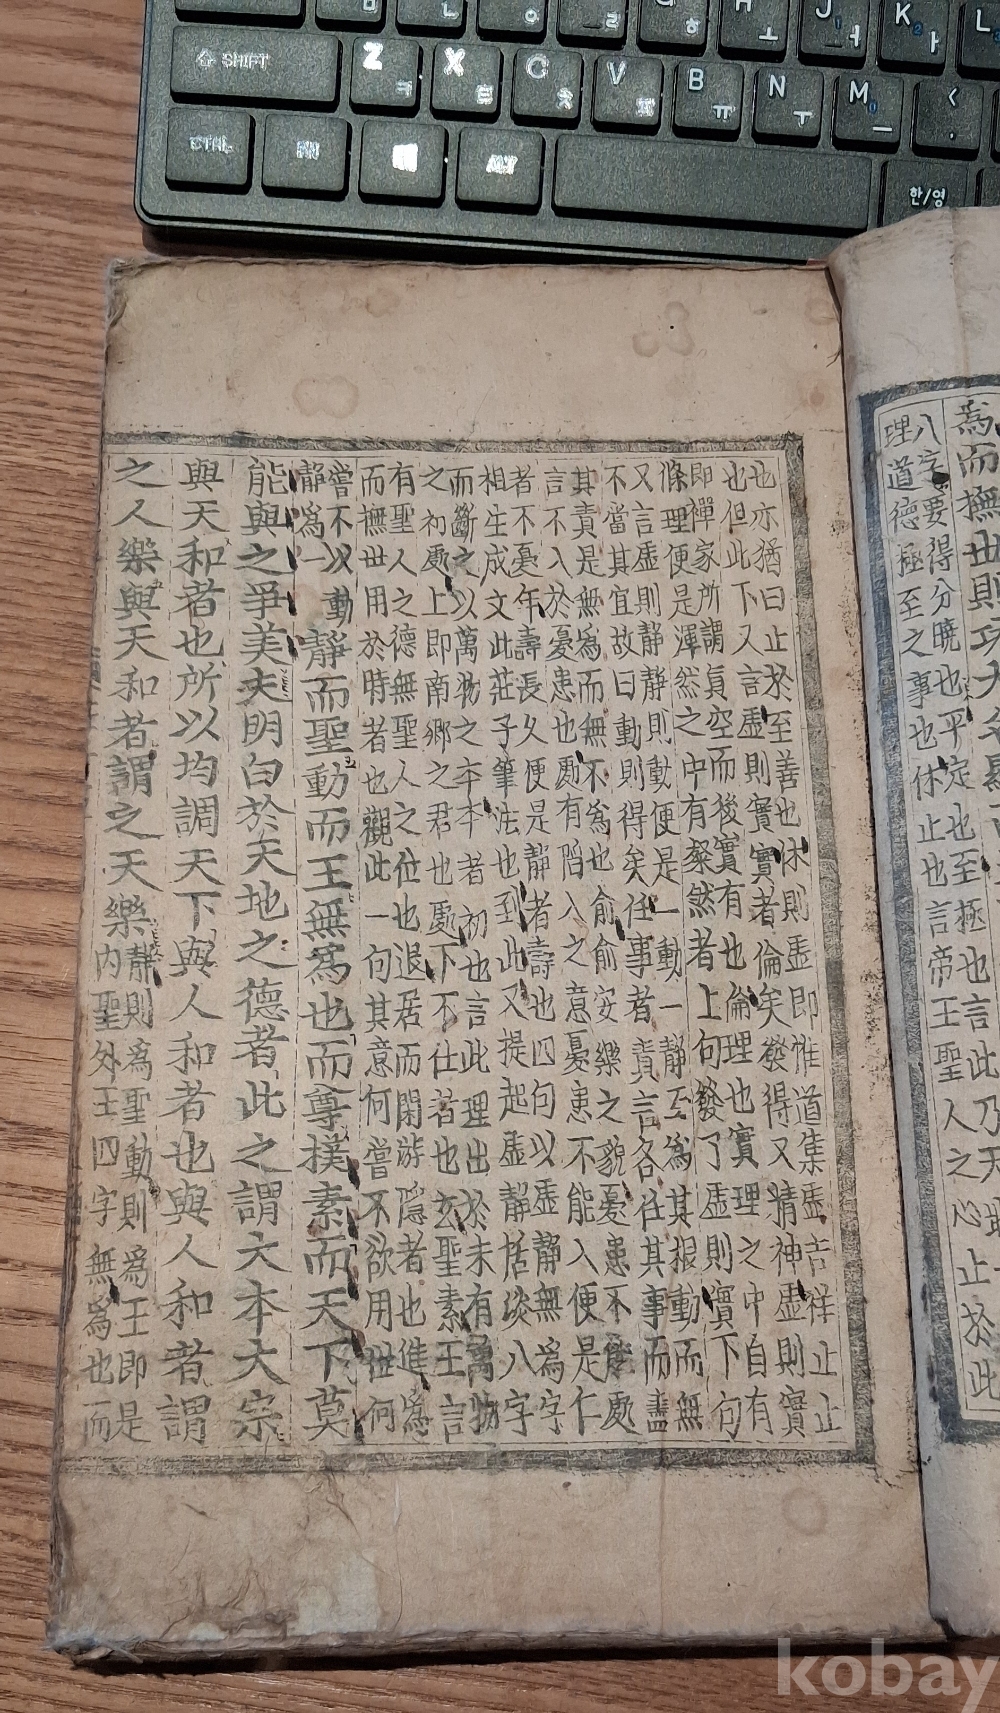 SHIFT
Z ㅋ
X ㅌ
C ㅊ
V ㅍ
B ㅠ
N ㅜ
M ㅡ
<
,
H ㅗ
J ㅓ
K ㅏ
L
CTRL
한/영
爲而撫世則功大名顯而
八字要得分曉也平定也至極也言此乃天地一
理道德極至之事也休止也言帝王聖人之心止於此
也亦猶曰止於至善也休則虛即惟道集虛吉祥止止
也但此下又言虛則實實者倫矣發得又精神虛則實
即禪家所謂眞空而後實有也倫理也實理之中自有
條理便是渾然之中有粲然者上句發了虛則實下句
又言虛則靜靜則動便是一動一靜至爲其根動而無
不當其宜故曰動則得矣任事者責言各任其事而盡
其責是無爲而無不爲也俞俞安樂之貌憂患不能處
言不入於憂患也處有陷入之意憂患不能入便是仁
者不憂年壽長久便是靜者壽也四句以虛靜無爲字
相生成文此莊子筆法也到此又提起虛靜恬淡八字
而斷之以萬物之本本者初也言此理出於未有萬物
之初處上即南鄉之君也處下不仕者也玄聖素王言
有聖人之德無聖人之位也退居而閑游隱者也進爲
而撫世用於時者也觀此一句其意何嘗不欲用世何
嘗不以動
靜爲一
靜而聖動而王無爲也而尊樸素而天下莫
能與之爭美夫明白於天地之德者此之謂大本大宗
與天和者也所以均調天下與人和者也與人和者謂
之人樂與天和者謂之天樂
靜則爲聖動則爲王即是
內聖外王四字無爲也而
kobay